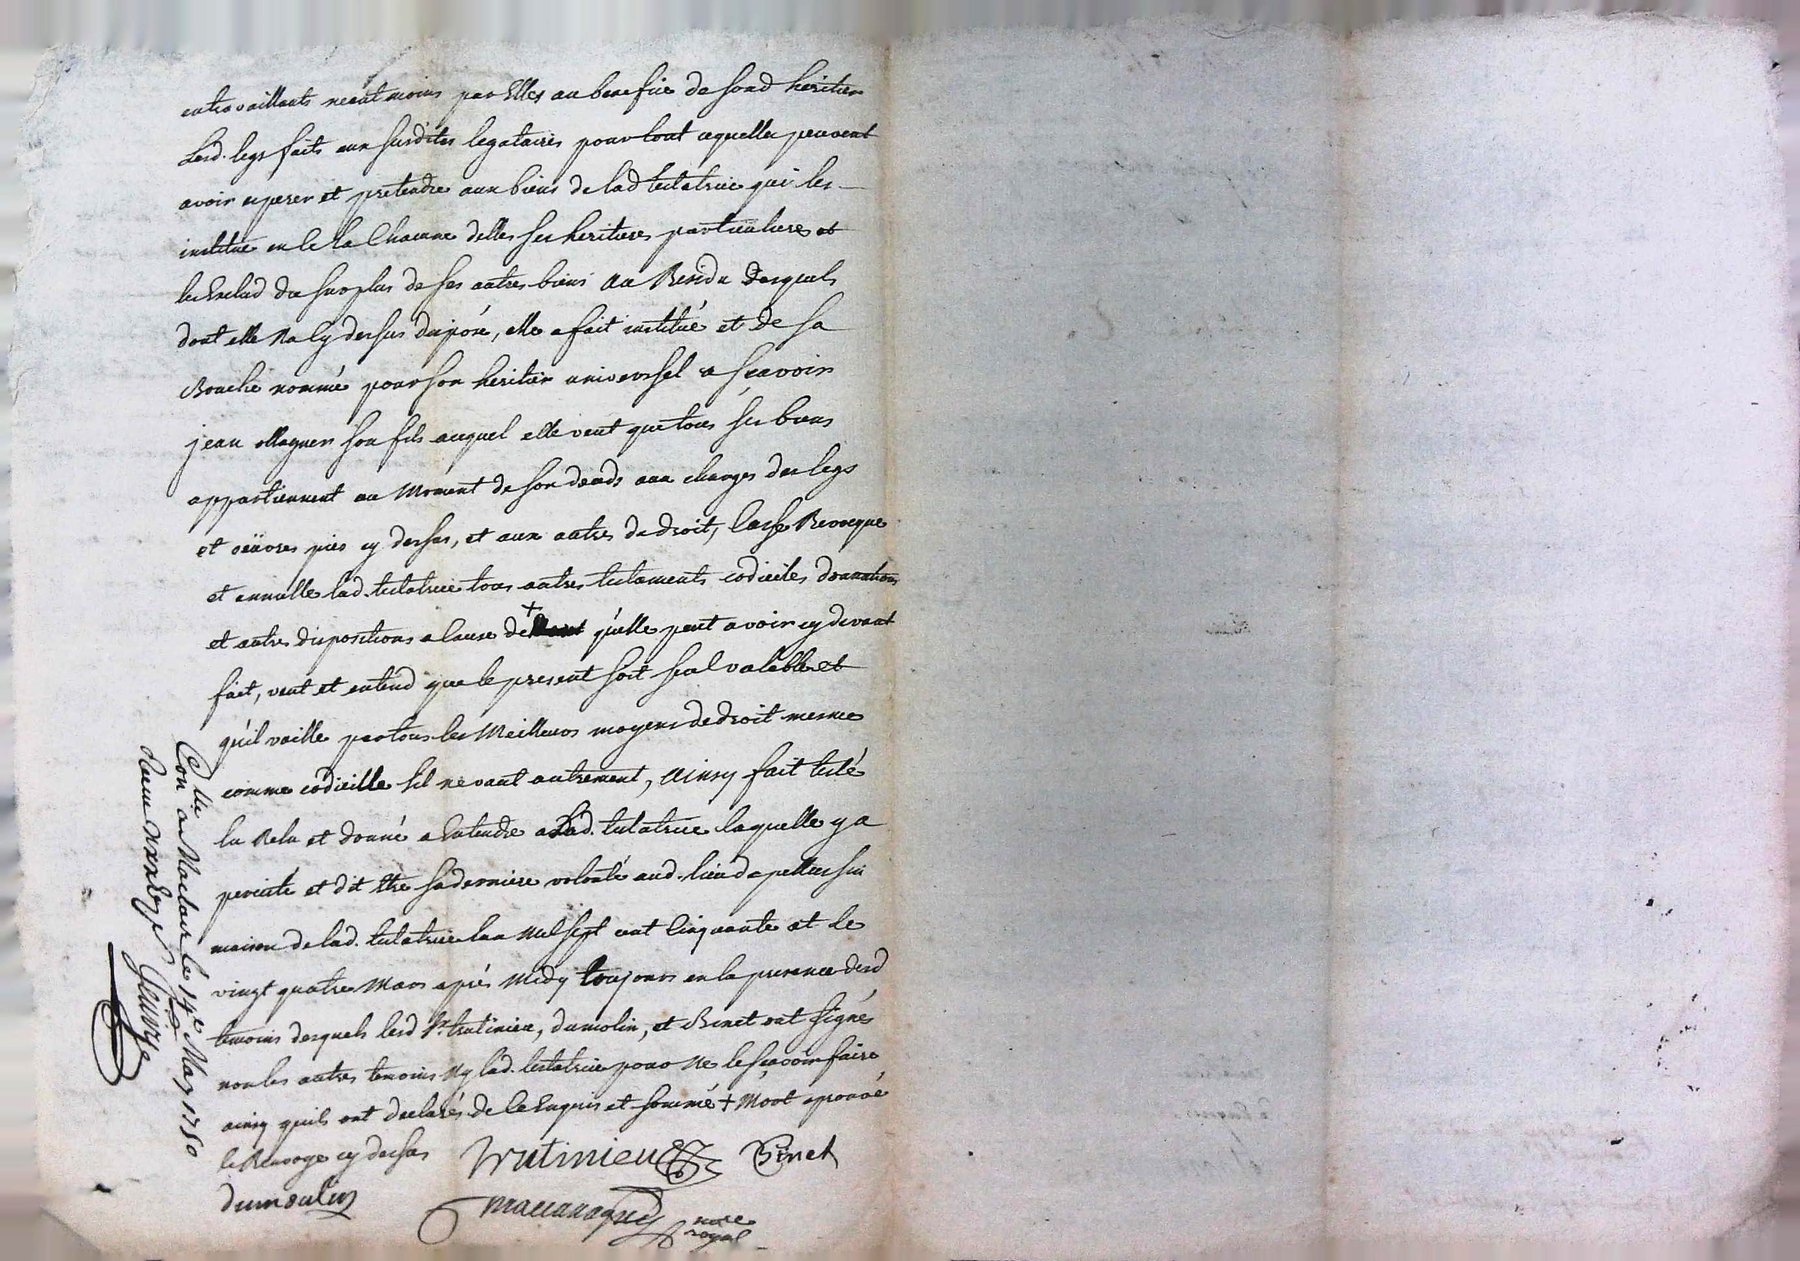 entravaillants neantmoins par Elles au benefice de sond heritier
Lesd. legs faits aux susdites legataires pour tout cequelles peuvent
avoir esperer et pretendre aux biens de lad testatrice qui les
institue en ce la Chacune delles ses heritieres particulieres et
les Exclud du surplus de ses autres biens Au Residu desquels
dont elle Na Cy dessus disposé, elle a fait institué et de sa
Bouche nommé pour son heritier universsel a scavoir
jean ollagner son fils auquel elle veut que tous ses biens
appartiennent au Moment de son deceds aux charges des legs
et oeüvres pies cy dessus, et aux autres de droit, Casse Revocque
et annulle lad. testatrice tous autres testaments codiciles donnations
et autres dispositions a Cause de + qu'elle peut avoir cy devant
fait, veut et entend que le present soit seul valable et
qu'il vaille par tous les Meilleurs moyens de droit mesme
comme codicille s'il ne vaut autrement, Ainsy fait testé
lu Relu et donné a Entendre a Lad. testatrice laquelle y a
percisté et dit Etre sa derniere volonté aud. lieu da
maison de lad. testatrice lan Mil sept cent Cinquante et le
vingt quatre Mars aprés Midy toujours en la presence desd
temoins desquels lesd Sr. trutinieu, dumolin, et Binet ont signés
non les autres temoins Ny lad. testatrice pour Ne le scavoir faire
ainsy quils ont declarés de ce Enquis et sommé + Mort aprouvé
le Renvoye cy dessus Trutinieu Binet
dumoulin
nore
royal
Con a le 14e May 1750